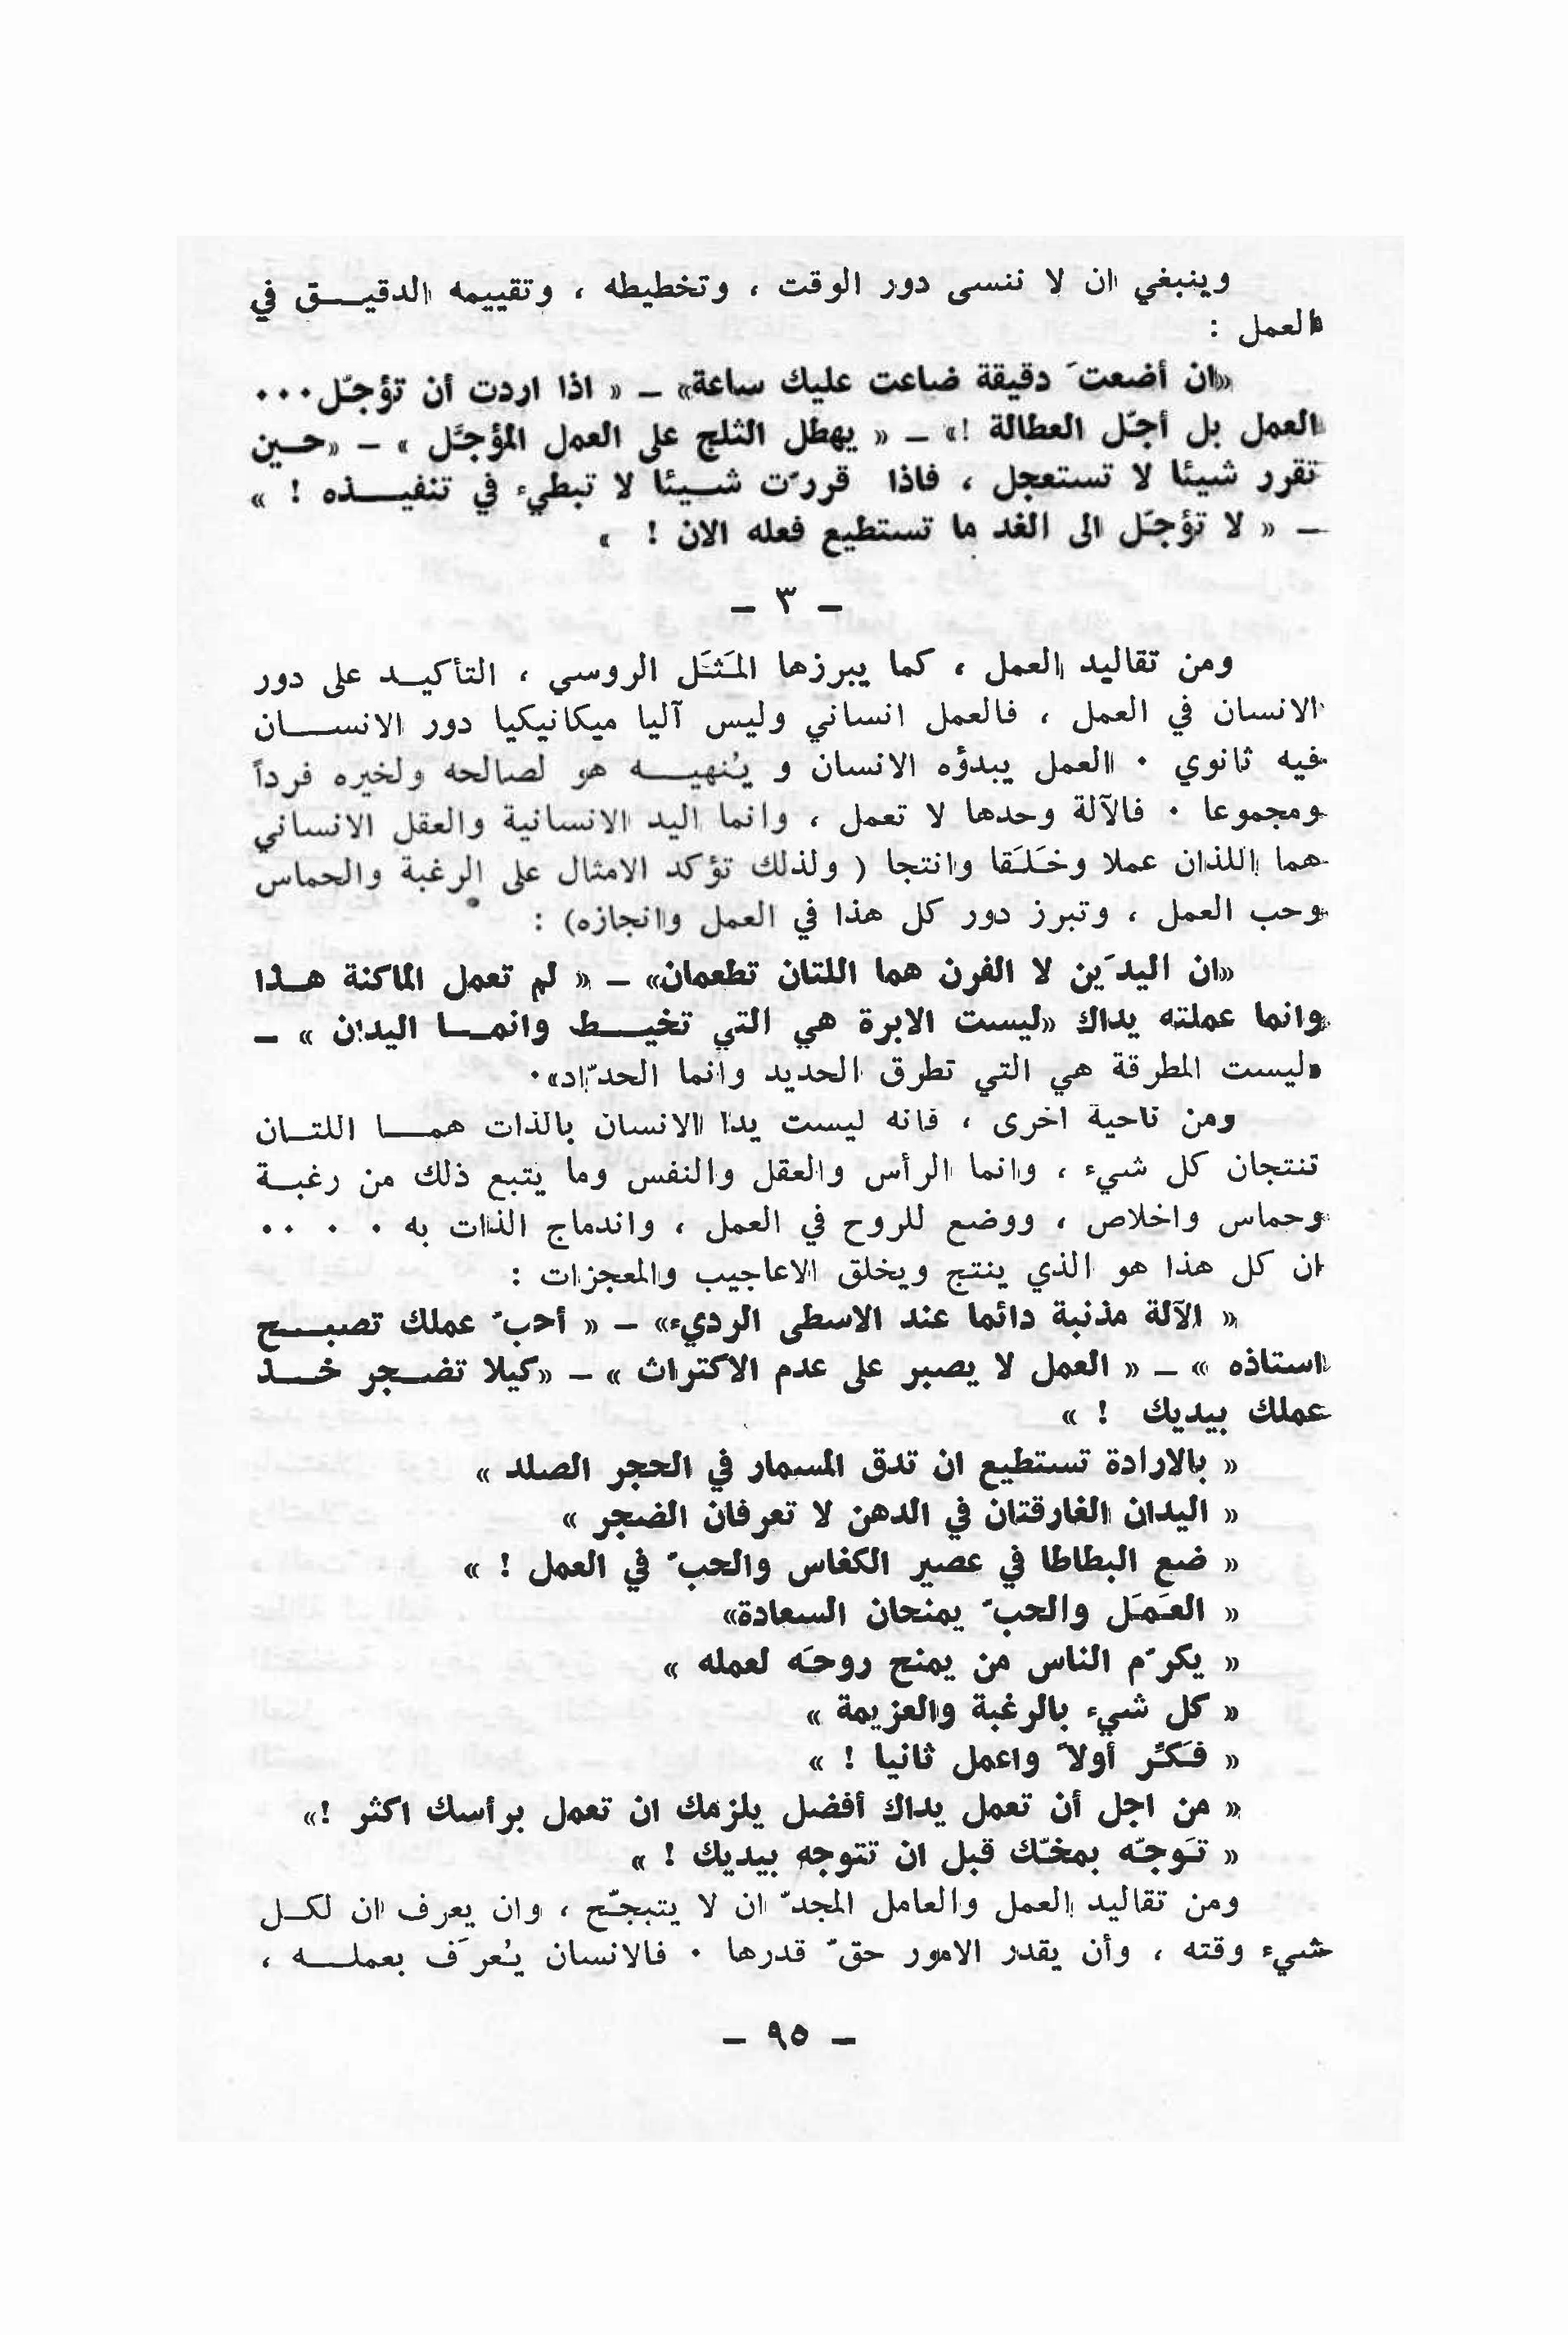 وينبغي ان لا ننسى دور الوقت ، وتخطيطه ، وتقييمه الدقيـــق في
العمل :
«ان أضعتَ دقيقة ضاعت عليك ساعة» ــ « اذا اردت أن تؤجّل٠٠٠
العمل بل أجّل العطالة !» ــ « يهطل الثلج على العمل المؤجَّل » ــ «حـين
تقرر شيئا لا تستعجل ، فاذا قررّت شـيئا لا تبطيء في تنفيـــذه ! »
ــ « لا تؤجّل الى الغد ما تستطيع فعله الان ! »
ــ ٣ ــ
ومن تقاليد العمل ، كما يبرزها المَثَل الروسي ، التأكيـد على دور
الانسان في العمل ، فالعمل انساني وليس آليا ميكانيكيا دور الانســـان
فيه ثانوي ٠ العمل يبدؤه الانسان و يُنهيـــه هو لصالحه ولخيره فرداً
ومجموعا ٠ فالآلة وحدها لا تعمل ، وانما اليد الانسانية والعقل الانساني
هما اللذان عملا وخَلَقا وانتجا ( ولذلك تؤكد الامثال على الرغبة والحماس
وحب العمل ، وتبرز دور كل هذا في العمل وانجازه) :
«ان اليدَين لا الفرن هما اللتان تطعمان» ــ « لم تعمل الماكنة هـذا
وانما عملته يداك «ليست الابرة هي التي تخيـــط وانمـــا اليدان » ــ
«ليست المطرقة هي التي تطرق الحديد وانما الحدّاد»٠
ومن ناحية اخرى ، فانه ليست يدا الانسان بالذات همـــا اللتـان
تنتجان كل شيء ، وانما الرأس والعقل والنفس وما يتبع ذلك من رغبـة
وحماس واخلاص ، ووضع للروح في العمل ، واندماج الذات به ٠ ٠ ٠٠
ان كل هذا هو الذي ينتج ويخلق الاعاجيب والمعجزات :
« الآلة مذنبة دائما عند الاسطى الرديء» ــ « أحبّ عملك تصبـــح
استاذه » ــ « العمل لا يصبر على عدم الاكتراث » ــ «كيلا تضـجر خـــذ
عملك بيديك ! »
« بالارادة تستطيع ان تدق المسمار في الحجر الصلد »
« اليدان الغارقتان في الدهن لا تعرفان الضجر »
« ضع البطاطا في عصير الكفاس والحبّ في العمل ! »
« العَمَل والحبّ يمنحان السعادة»
« يكرّم الناس من يمنح روحَه لعمله »
« كل شيء بالرغبة والعزيمة »
« فَكِّر أولاً واعمل ثانيا ! »
« من اجل أن تعمل يداك أفضل يلزمك ان تعمل برأسك اكثر !»
« تَوجّه بمخّك قبل ان تتوجه بيديك ! »
ومن تقاليد العمل والعامل المجدّ ان لا يتبجّح ، وان يعرف ان لكـل
شيء وقته ، وأن يقدر الامور حقّ قدرها ٠ فالانسان يُعرَف بعملـــه ،
ــ ٩٥ ــ